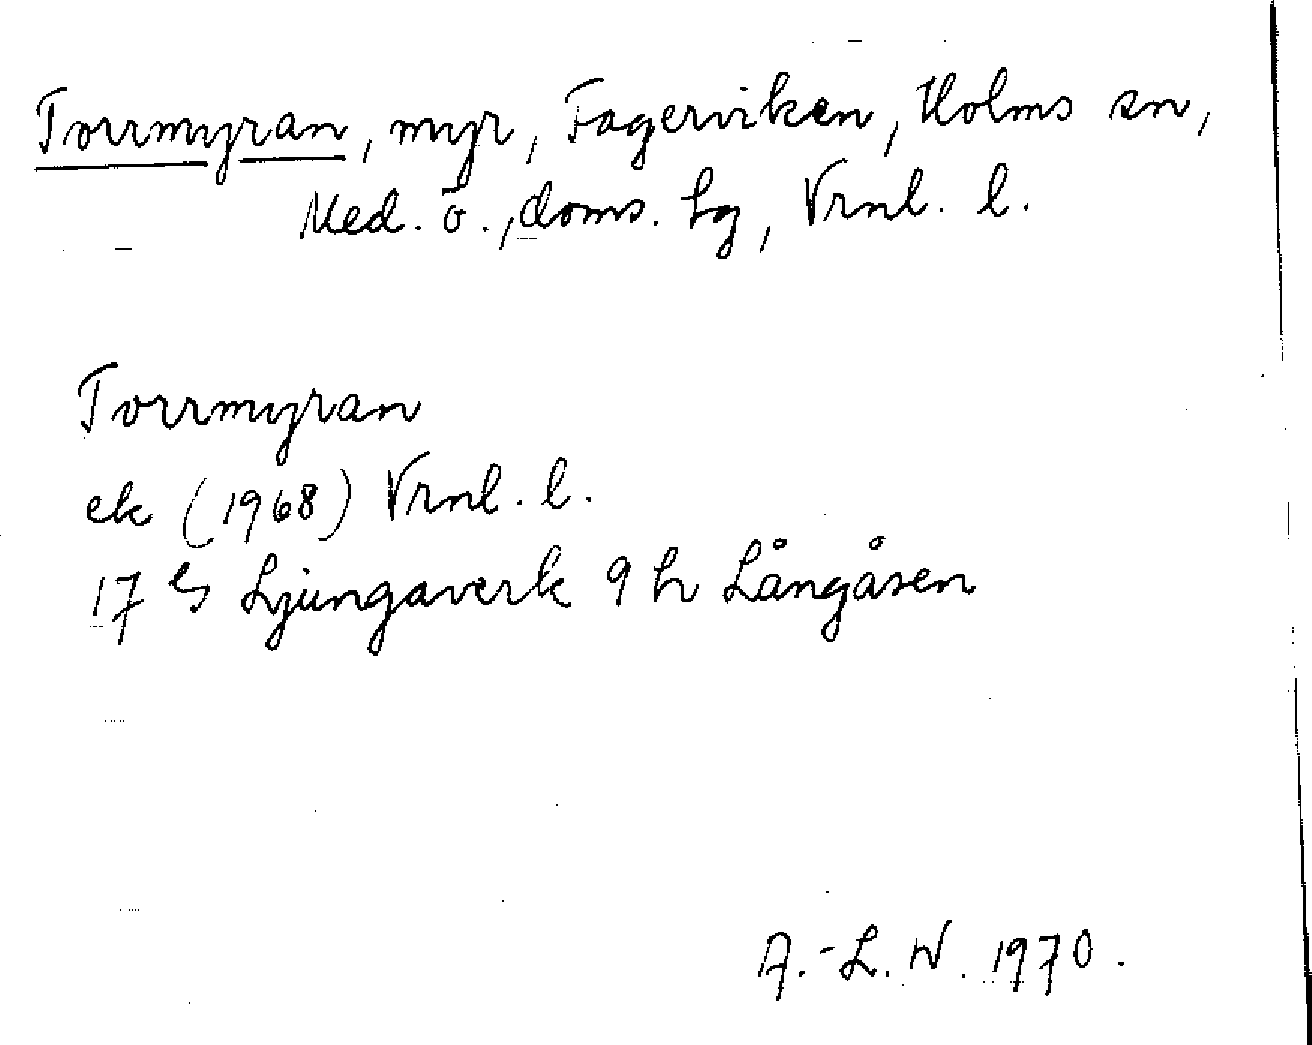 Torrmyran, myr, Fagerviken, Holms sn,
Med. ö., doms. hg, Vrnl. l.
Torrmyran
ek (1968) Vrnl. l.
17 G Ljungaverk 9 h Långåsen
A.-L. W. 1970.